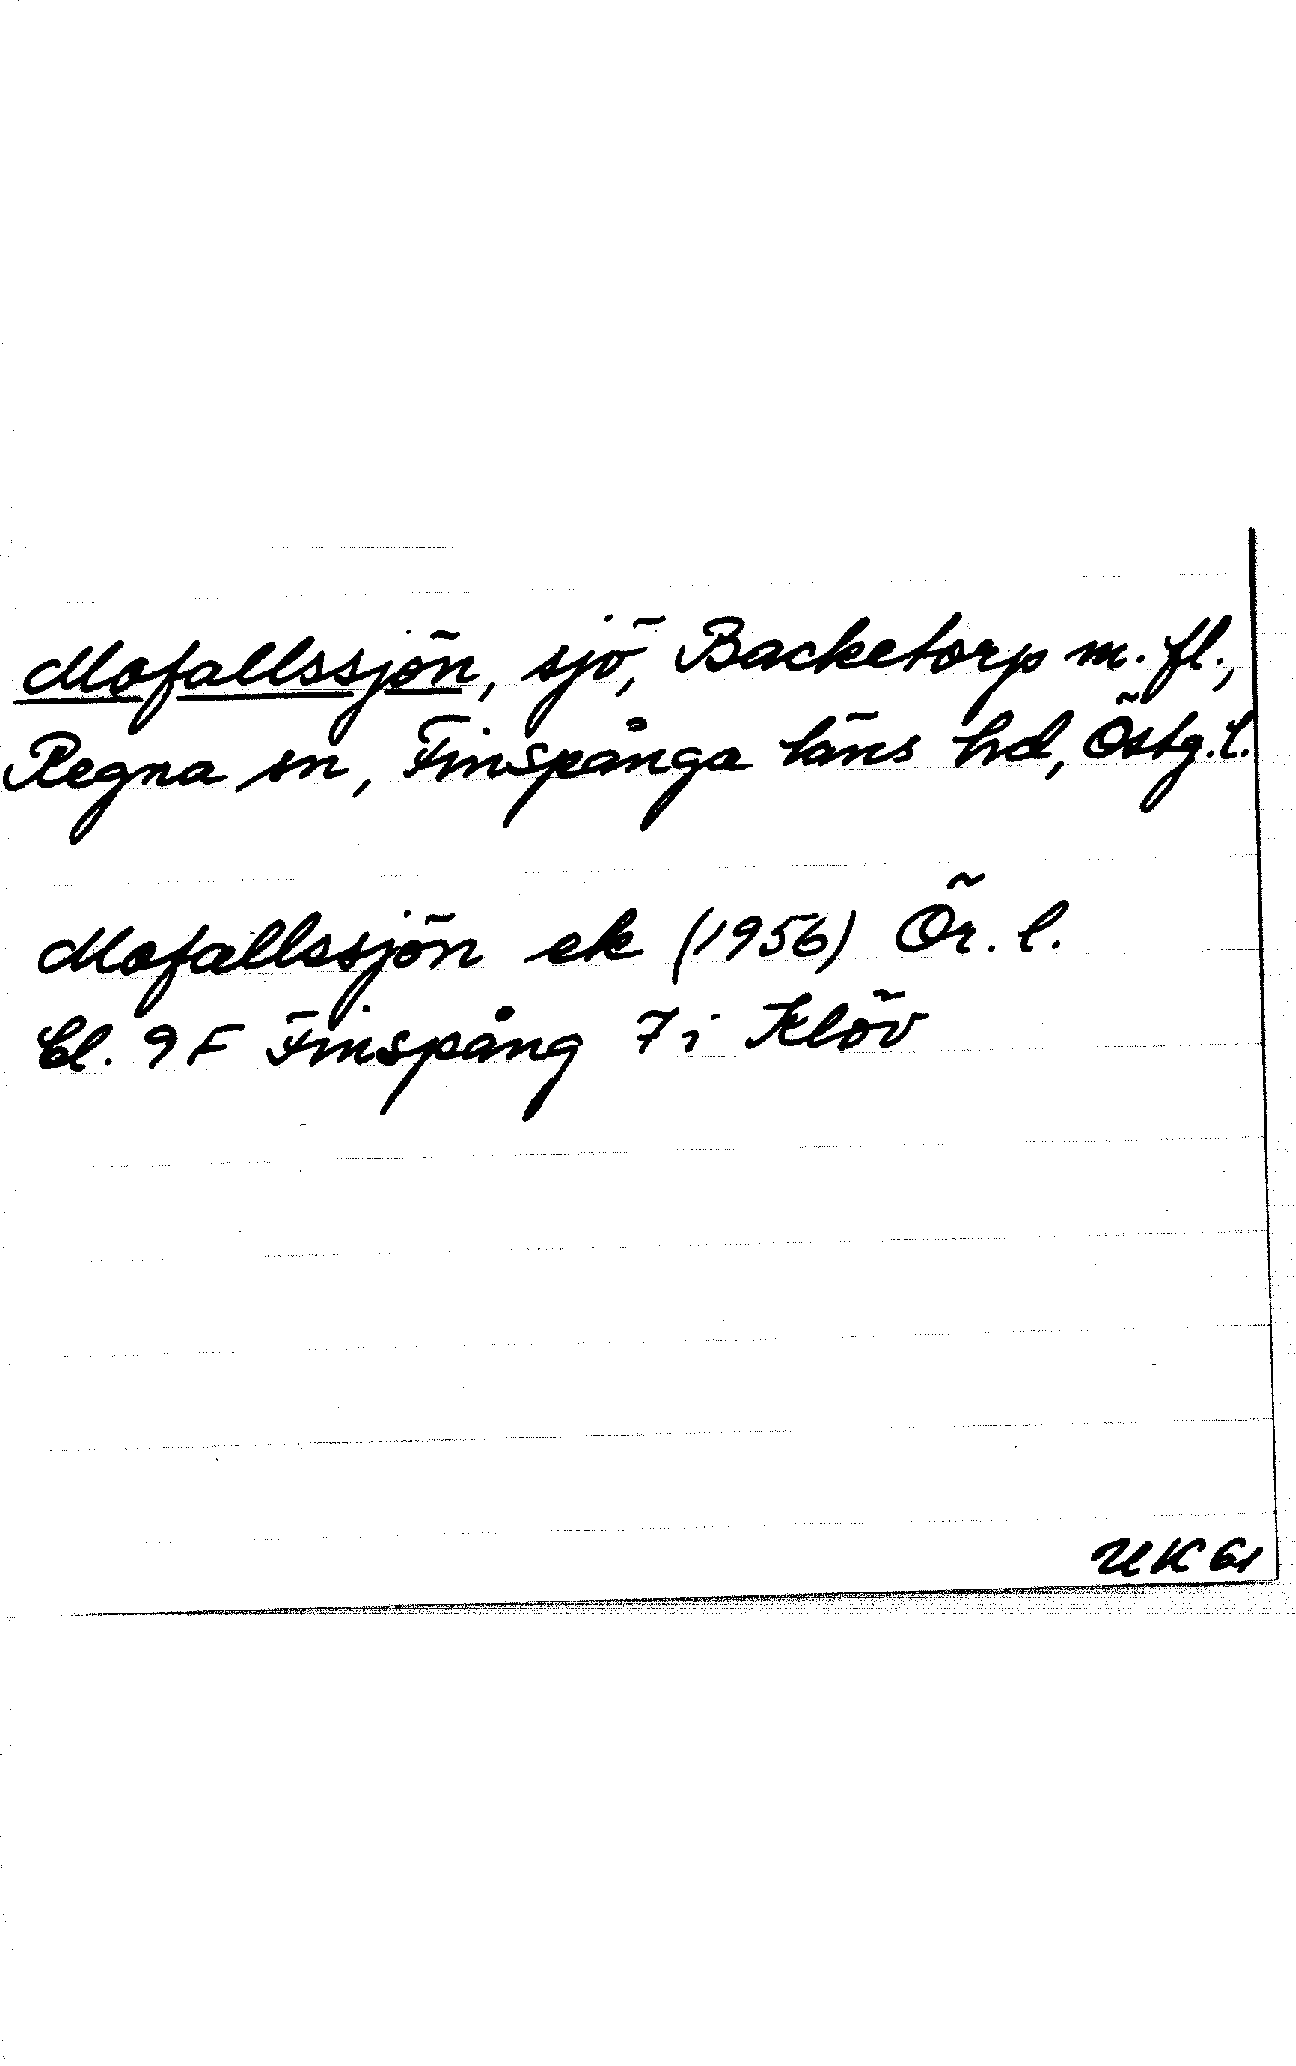 Mofallssjön, sjö, Backetorp m. fl.,
Regna sn, Finspånga läns hd, Östg. l.
Mofallssjön ek (1956) Ör. l.
bl. 9 F Finspång 7 i Klöv
UK 61